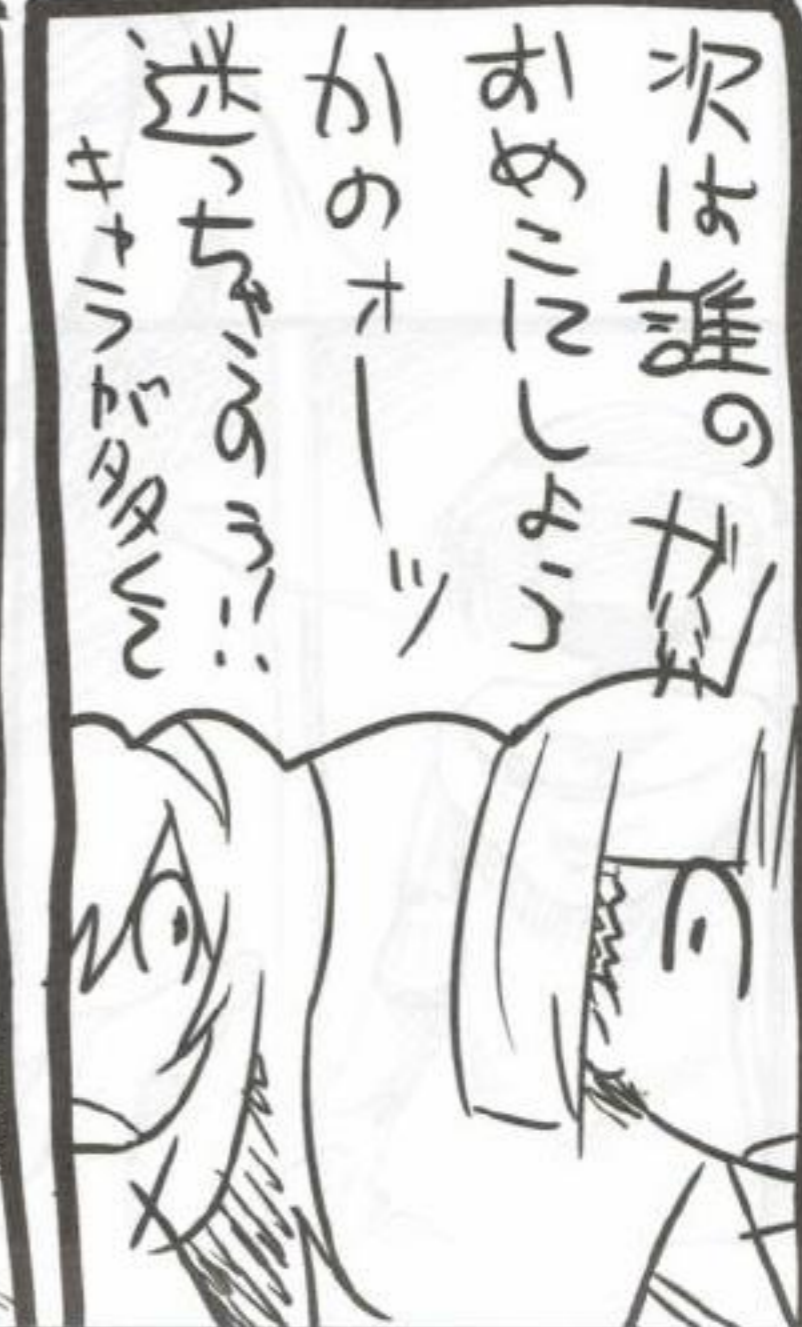 次は誰の
おめこにしよう
かのォーッ
迷っちゃうのう!!
きゃらが多くて